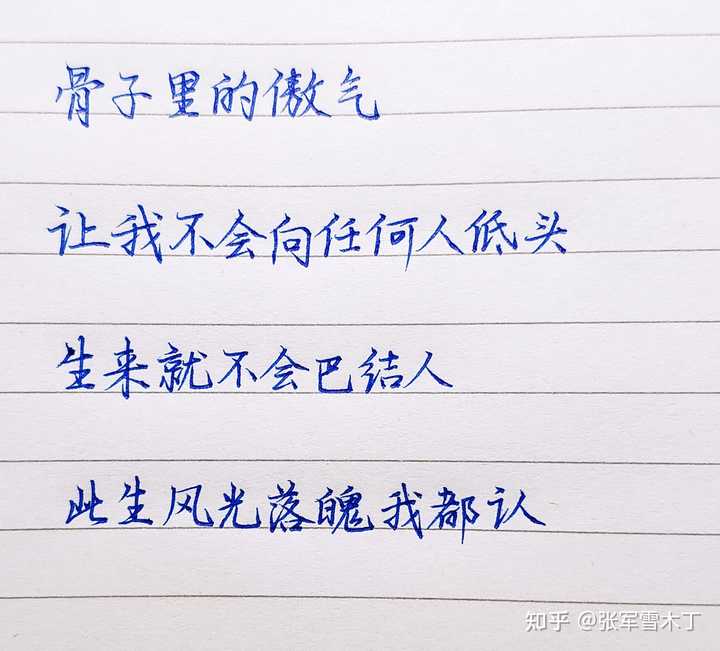 骨子里的傲气
让我不会向任何人低头
生来就不会巴结人
此生风光落魄我都认
知乎 @张军雪木丁